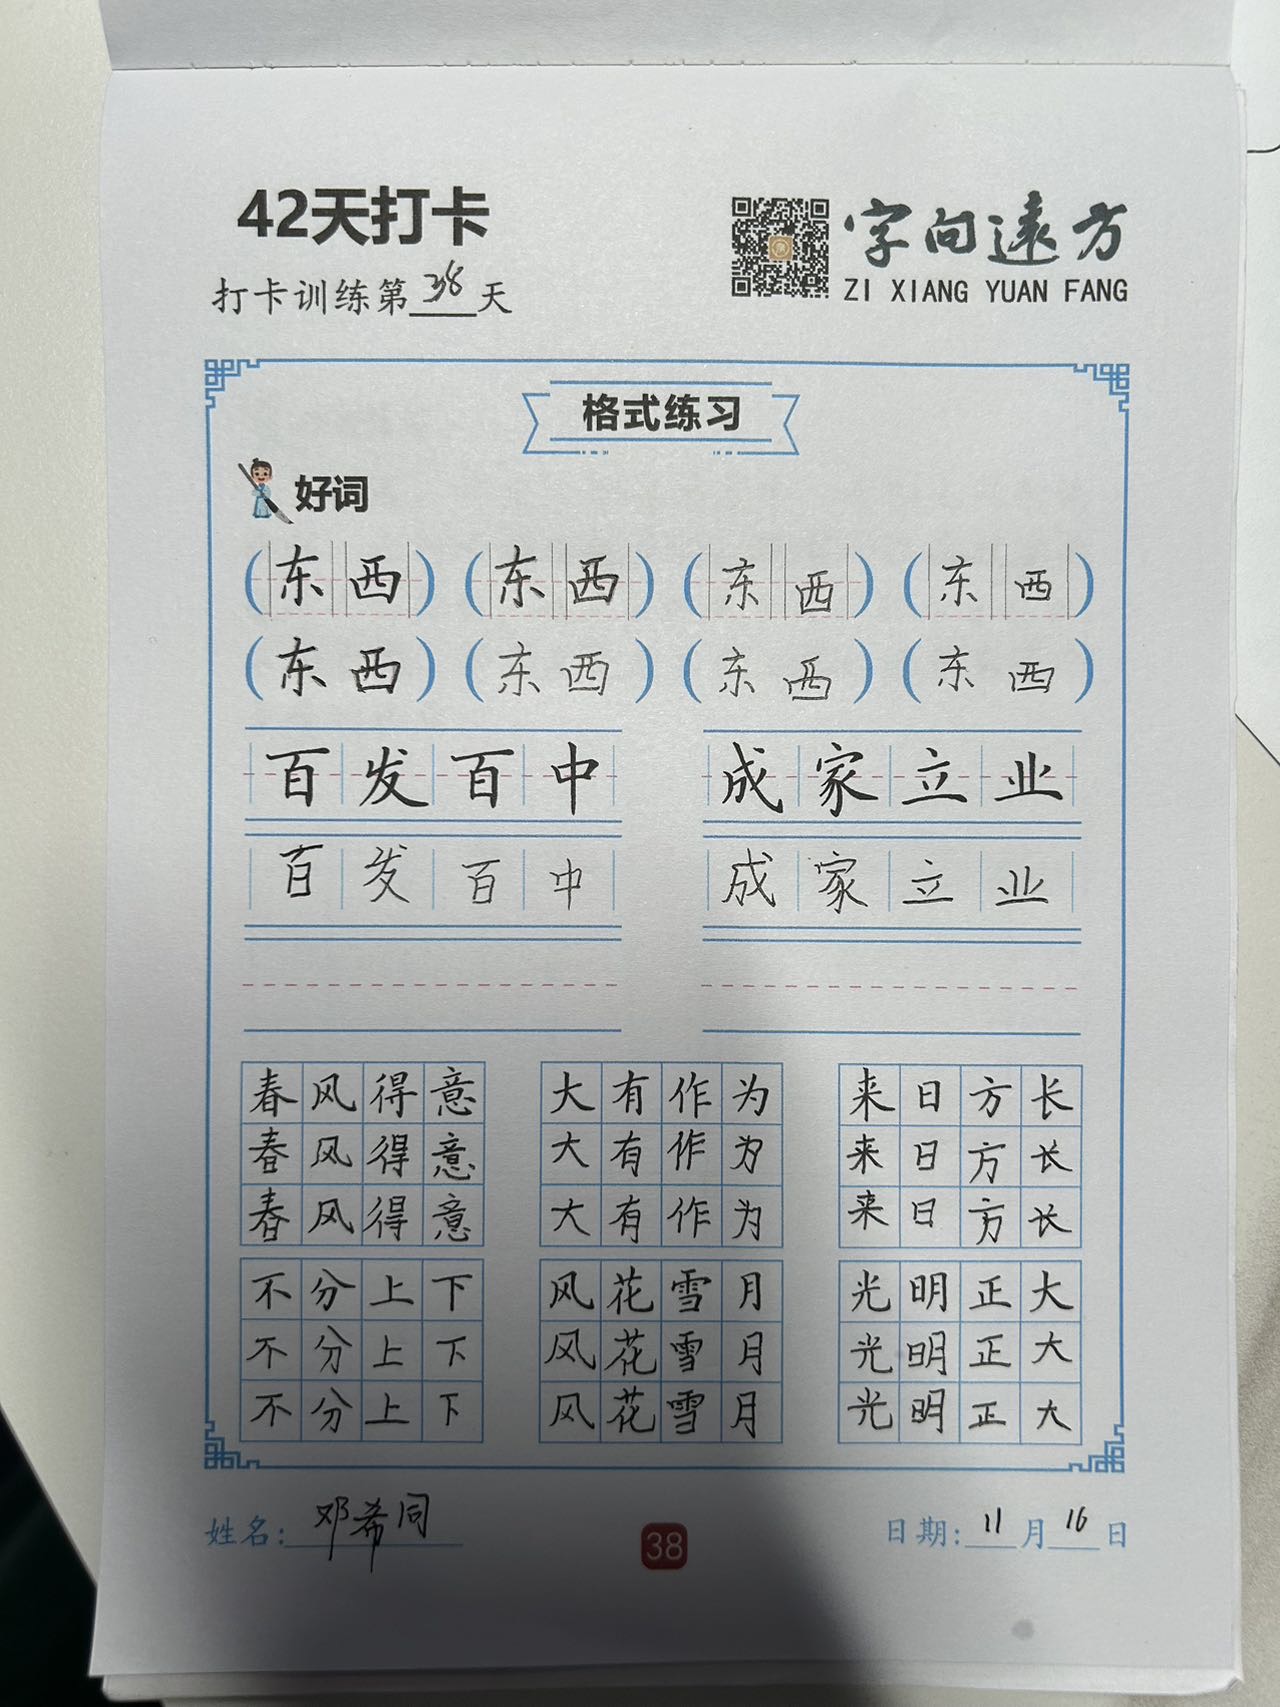 42天打卡
字向远方
ZI XIANG YUAN FANG
打卡训练第38天
格式练习
好词
(东西) (东西) (东西) (东西)
(东西) (东西) (东西) (东西)
百发百中 成家立业
百发百中 成家立业
春风得意 大有作为 来日方长
春风得意 大有作为 来日方长
春风得意 大有作为 来日方长
不分上下 风花雪月 光明正大
不分上下 风花雪月 光明正大
不分上下 风花雪月 光明正大
姓名:邓希同 38 日期:11月16日